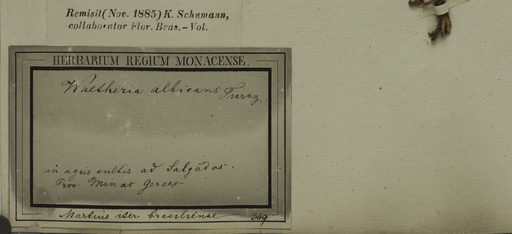 Remisit (Nov. 1885) K. Schumann,
collaborator Flor. Bras. – Vol.
HERBARIUM REGIUM MONACENSE.
Waltheria albicans Turcz.
in agris cultis ad Salgados.
Prov. Minas Geraes
Martius iter brasiliense